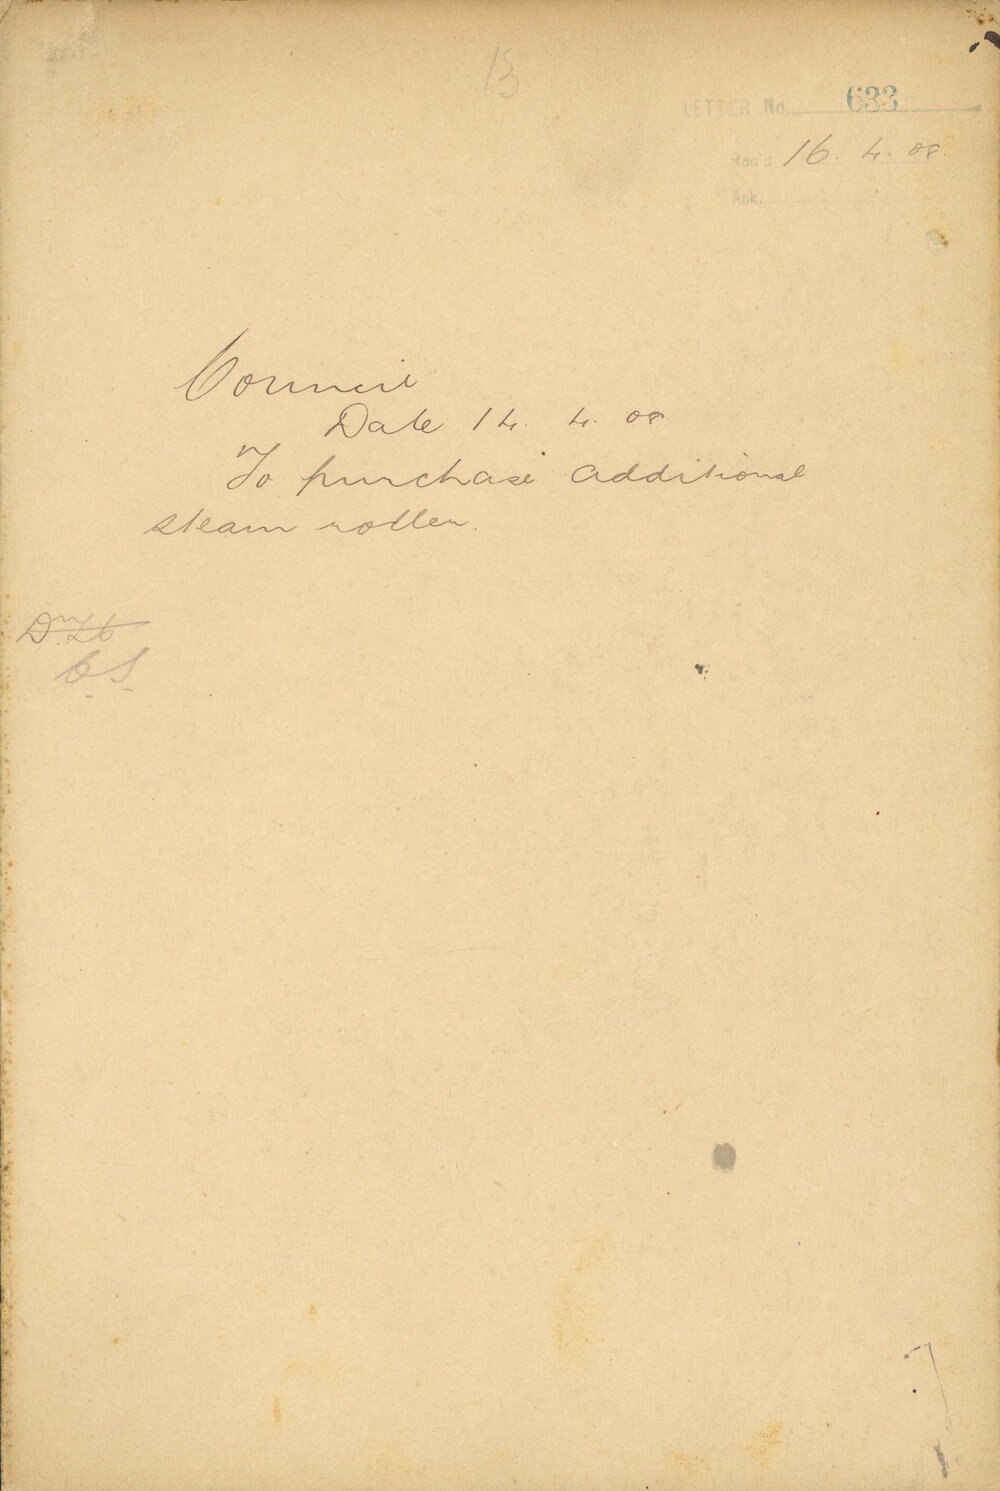 13
LETTER No. 633
Rec'd 16. 4. 08.
Ack.
Council
Date 14. 4. 08.
To purchase additional
steam roller.
C S